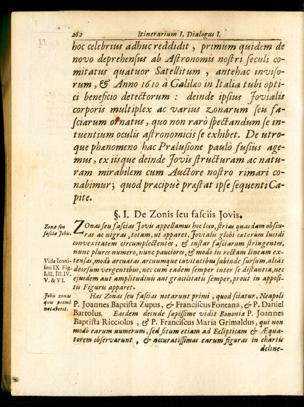 262 Itinerarium I. Dialogus I.
hoc celebrius adhuc reddidit, primùm quidem de
novo deprehensus ab Astronomis nostri seculi co-
mitatus quatuor Satellitum, antehac inviso-
rum, & Anno 1610 à Galilæo in Italia tubi opti-
ci beneficio detectorum: deinde ipsius Jovialis
corporis multiplex ac varius zonarum seu fa-
sciarum ornatus, quo non rarò spectandum se in-
tuentium oculis astronomicis se exhibet. De utro-
que phænomeno hac Prælusione paulò fusiùs age-
mus, ex iisque deinde Jovis structuram ac natu-
ram mirabilem cum Auctore nostro rimari co-
nabimur; quod præcipuè præstat ipse sequenti Ca-
pite.
§. I. De Zonis seu fasciis Jovis.
Zonæ seu fasciæ Jovis.
Zonas seu fascias Jovis appellamus hoc loco, strias quasdam obscu-
ras ac nigras, totam, ut apparet, Jovialis globi cæterùm lucidi
convexitatem circumplectentes, & instar fasciarum stringentes,
nunc plures numero, nunc pauciores, & modò in rectam lineam ex-
Vide Iconis-
mum IX. Fig.
I. II. III. IV.
V. & VI.
tensas, modò arcuatas arcuumque cavitatibus subinde sursum, aliàs
deorsum vergentibus, nec cum eadem semper inter se distantia, nec
ejusdem aut amplitudinis aut gracilitatis semper, prout in apposi-
tis Figuris apparet.
Has Zonas seu fascias notarunt primi, quod sciatur, Neapoli
P. Joannes Baptista Zupus, & Franciscus Fontana, & P. Daniel
Bartolus. Easdem deinde sæpissime vidit Bononiæ P. Joannes
Baptista Ricciolus, & P. Franciscus Maria Grimaldus, qui non
modò earum numerum, sed situm etiam ad Eclipticam & Æqua-
torem observarunt, & accuratissimas earum figuras in chartis
deline-